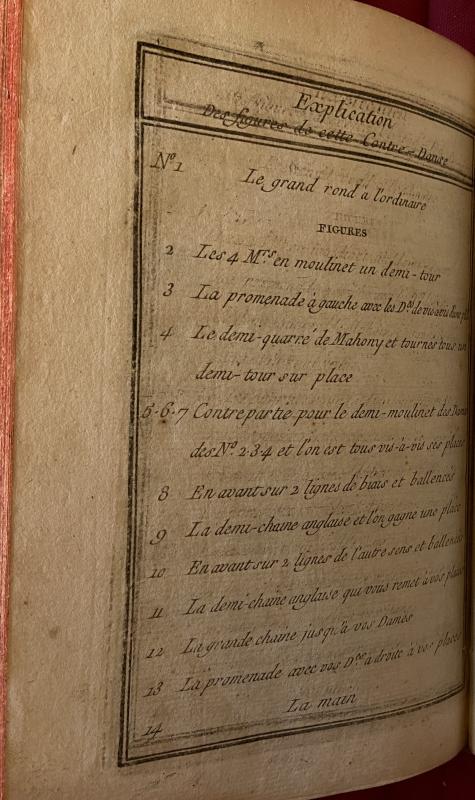 Explication
Des figures de cette Contre-Danse
Nº 1 Le grand rond à l'ordinaire
FIGURES
2 Les 4 Mrs en moulinet un demi-tour
3 La promenade à gauche avec les Des de vis à vis
4 Le demi-quarré de Mahony et tournés tous un
demi-tour sur place
5·6·7 Contrepartie pour le demi-moulinet des Dames
des Nº 2·3·4 et l'on est tous vis-à-vis ses places
8 En avant sur 2 lignes de biais et ballencés
9 La demi-chaine anglaise et l'on gagne une place
10 En avant sur 2 lignes de l'autre sens et ballencés
11 La demi-chaine anglaise qui vous remet à vos places
12 La grande chaine jusqu'à vos Dames
13 La promenade avec vos Des à droite à vos places
14 La main